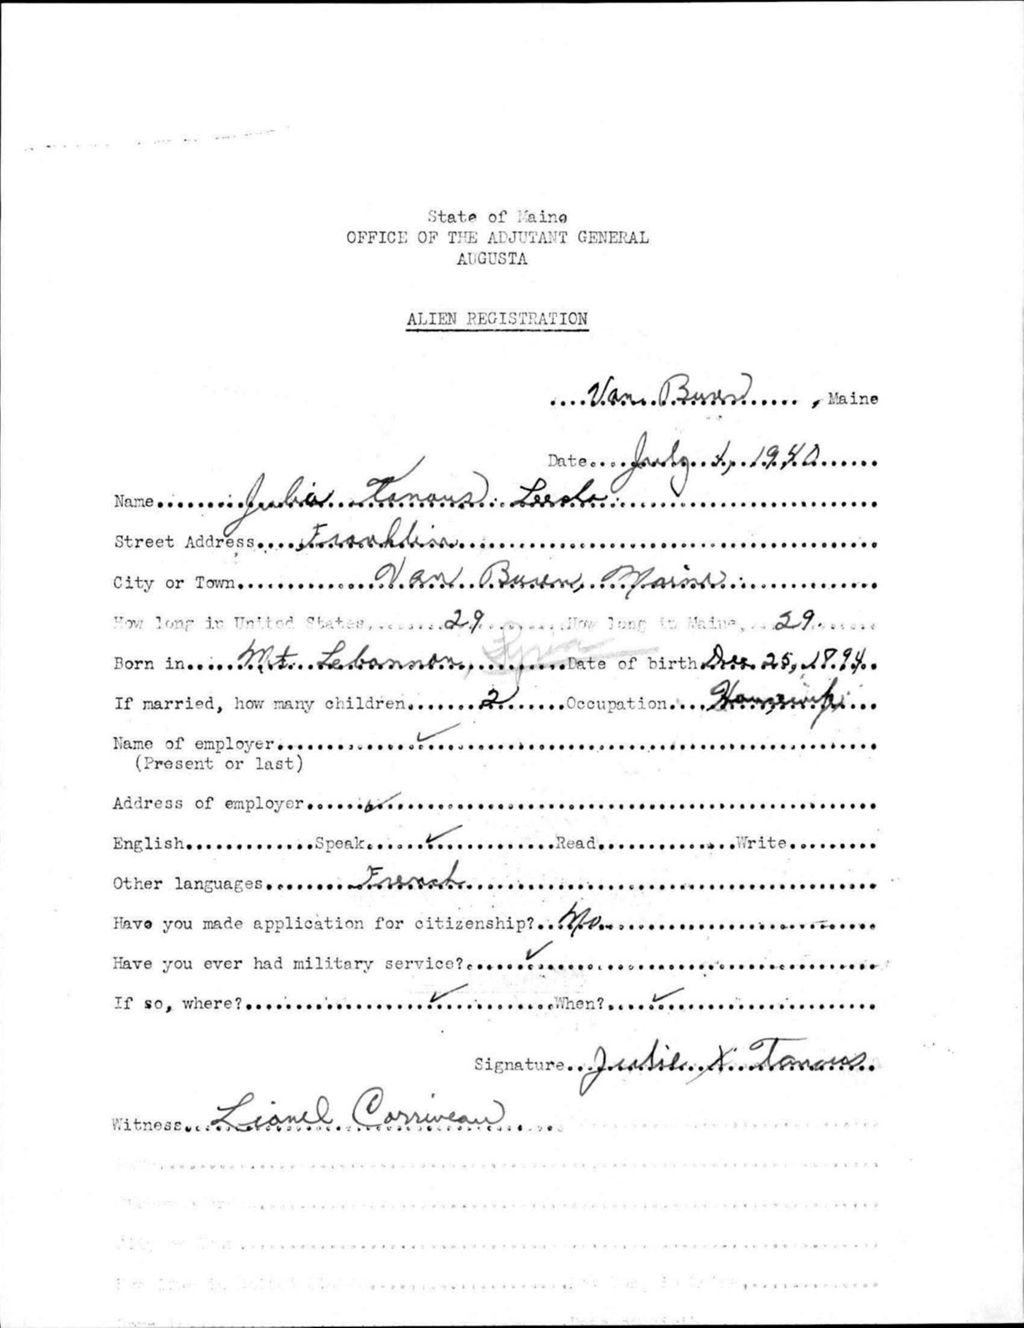 State of Maine
OFFICE OF THE ADJUTANT GENERAL
AUGUSTA
ALIEN REGISTRATION
Van Buren, Maine
Date July 1, 1940
Name Julia Tanous
Street Address Franklin
City or Town Van Buren, Maine
How long in United States 29 How long in Maine 29
Born in Mt. Lebannon, Syria Date of birth Dec. 25, 1894
If married, how many children 2 Occupation Housewife
Name of employer ✓
(Present or last)
Address of employer ✓
English Speak ✓ Read Write
Other languages French
Have you made application for citizenship? No
Have you ever had military service? ✓
If so, where? ✓ When? ✓
Signature Julie X Tanous
Witness Lionel Corriveau